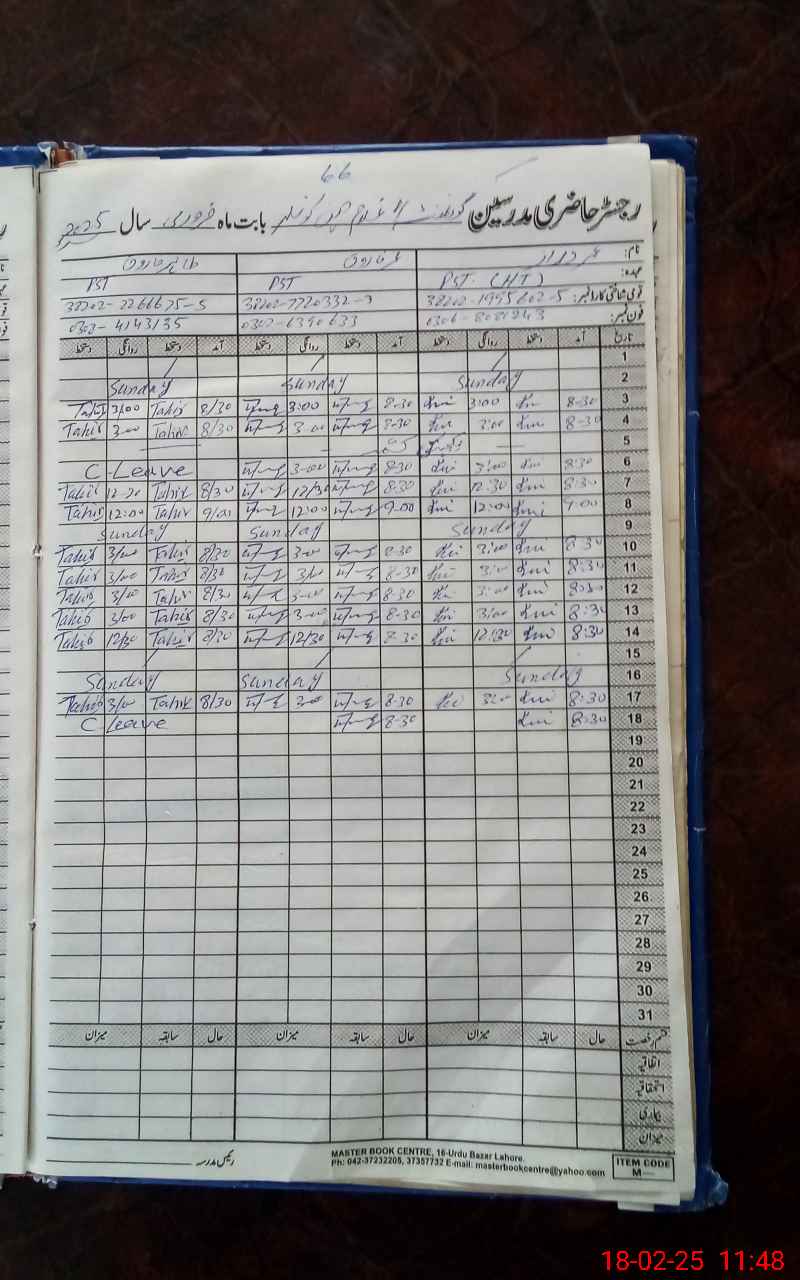 66
رجسٹر حاضری مدرسین گورنمنٹ بابت ماہ فروری سال 2025
نام: عمر دراز عمر فاروق طاہر فاروق
عہدہ: PST. (HT) PST PST
قومی شناختی کارڈ نمبر: 38202-1995602-5 38202-7720332-3 38202-2261675-5
فون نمبر: 0306-8081243 0302-6390633 0302-4143135
تاریخ آمد دستخط روانگی دستخط آمد دستخط روانگی دستخط آمد دستخط روانگی دستخط
1
2 Sunday Sunday Sunday
3 8-30 3:00 8-30 3:00 8/30 Tahir 3/00 Tahir
4 8-30 3:00 8-30 3-00 8/30 Tahir 3-00 Tahir
5
6 8:30 3:00 8-30 3-00 C-Leave
7 8:30 12:30 8-30 12/30 8/30 Tahir 12-30 Tahir
8 9:00 12:00 9-00 12:00 9/00 Tahir 12:00 Tahir
9 Sunday Sunday Sunday
10 8:30 3:00 8-30 3-00 8/30 Tahir 3/00 Tahir
11 8:30 3:00 8-30 3/00 8/30 Tahir 3/00 Tahir
12 8:30 3:00 8-30 3-00 8/30 Tahir 3/00 Tahir
13 8:30 3/00 8-30 3-00 8/30 Tahir 3/00 Tahir
14 8:30 12:30 8-30 12/30 8/30 Tahir 12/30 Tahir
15
16 Sunday Sunday Sunday
17 8:30 3:00 8-30 3-00 8/30 Tahir 3/00 Tahir
18 8:30 8-30 C-Leave
19
20
21
22
23
24
25
26
27
28
29
30
31
قسم رخصت حال سابقہ میزان حال سابقہ میزان حال سابقہ میزان
اتفاقیہ
استحقاقیہ
بیماری
میزان
رئیس مدرسہ
MASTER BOOK CENTRE, 16-Urdu Bazar Lahore.
Ph: 042-37232205, 37357732 E-mail: masterbookcentre@yahoo.com
ITEM CODE
M—
18-02-25 11:48